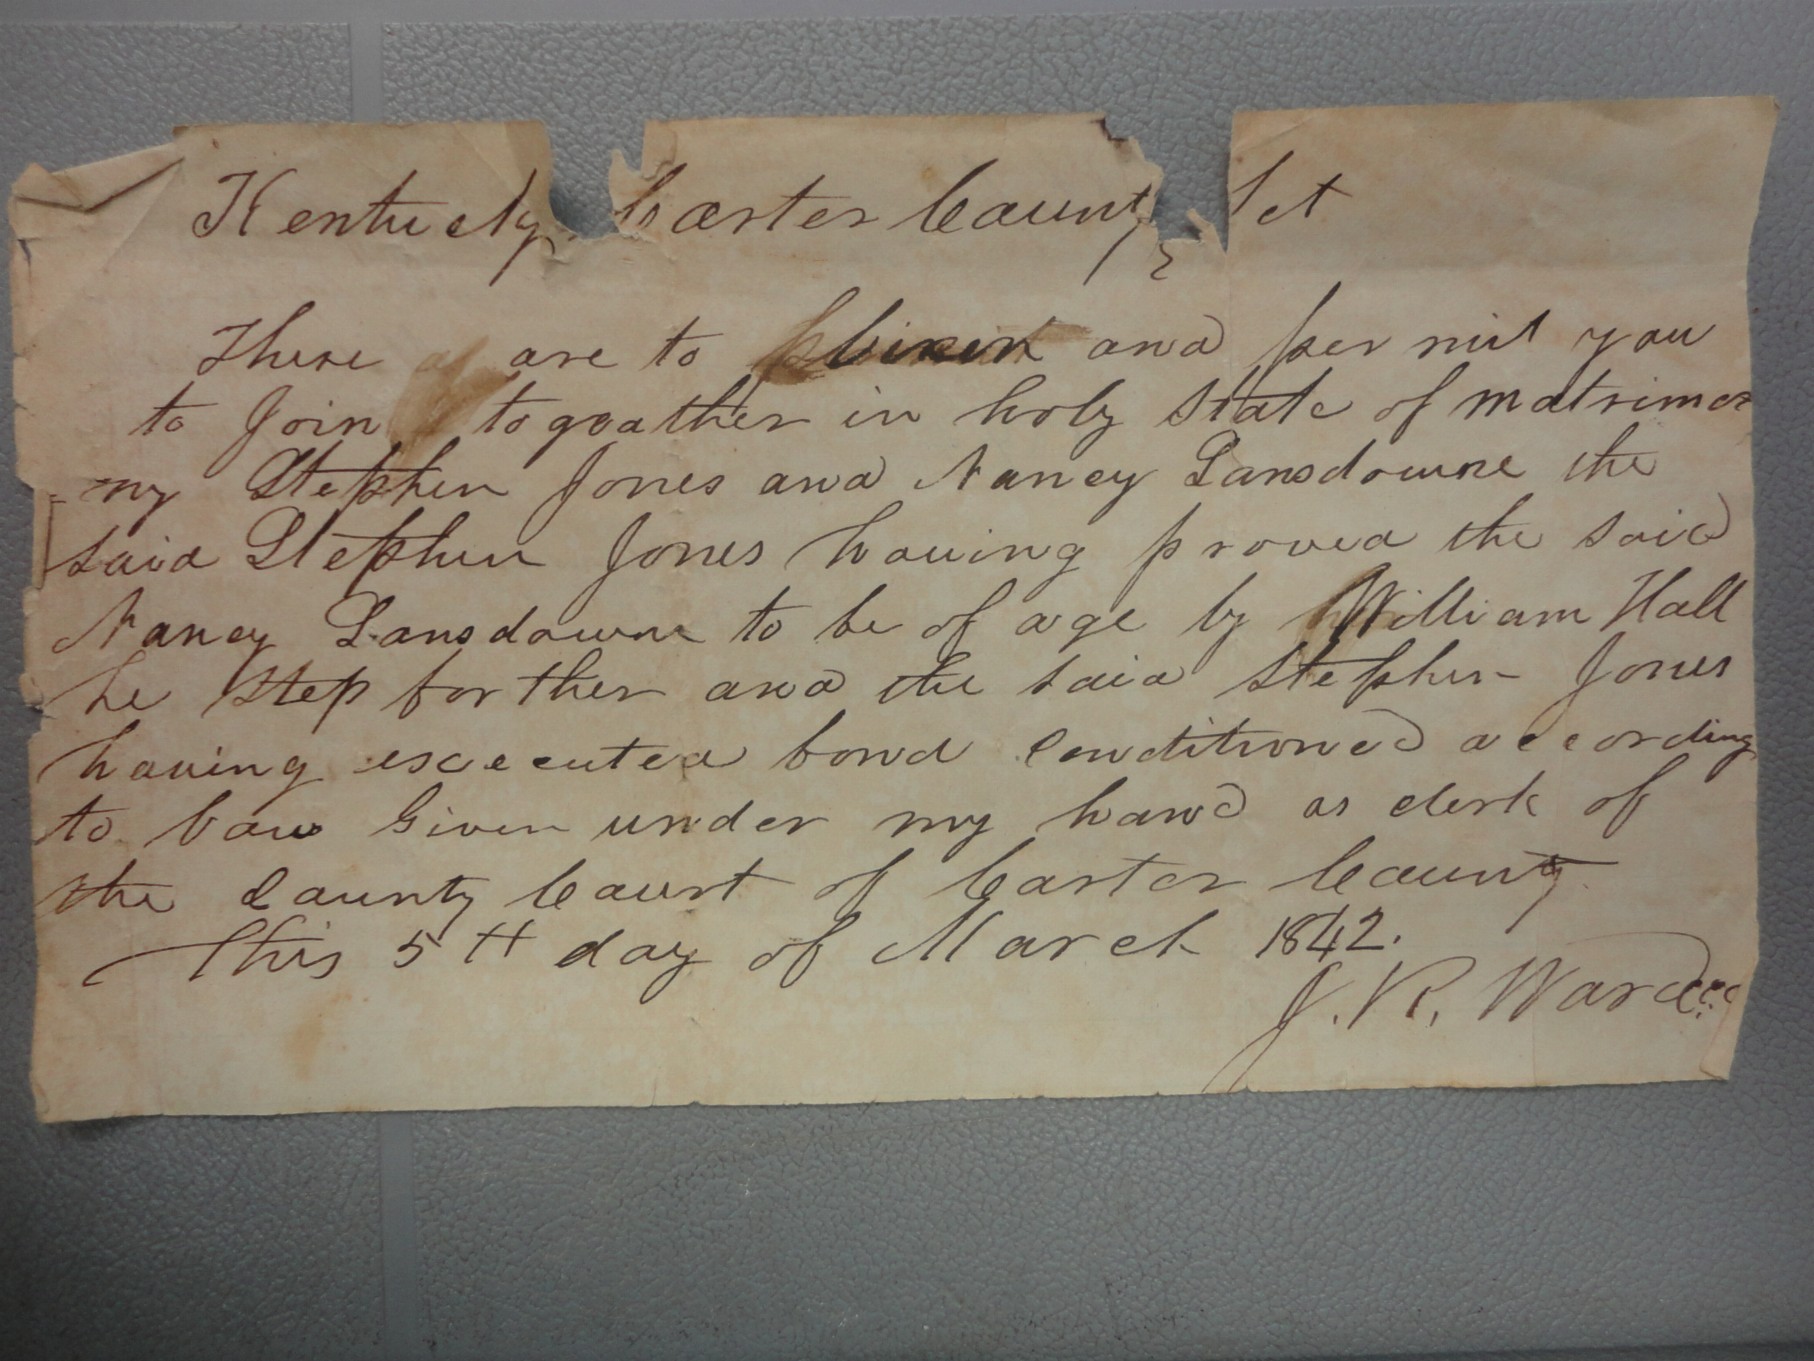 Kentucky Carter County Sct
These are to and permit you
to Join togeather in holy State of matrimo
ny Stephen Jones and Nancy Lansdowne the
said Stephen Jones having proved the said
Nancy Lansdowne to be of age by William Hall
he step forther and the said Stephen Jones
having executed bond Conditioned according
to Law Given under my hand as clerk of
the County Court of Carter County
This 5th day of March 1842.
J. R. Ward